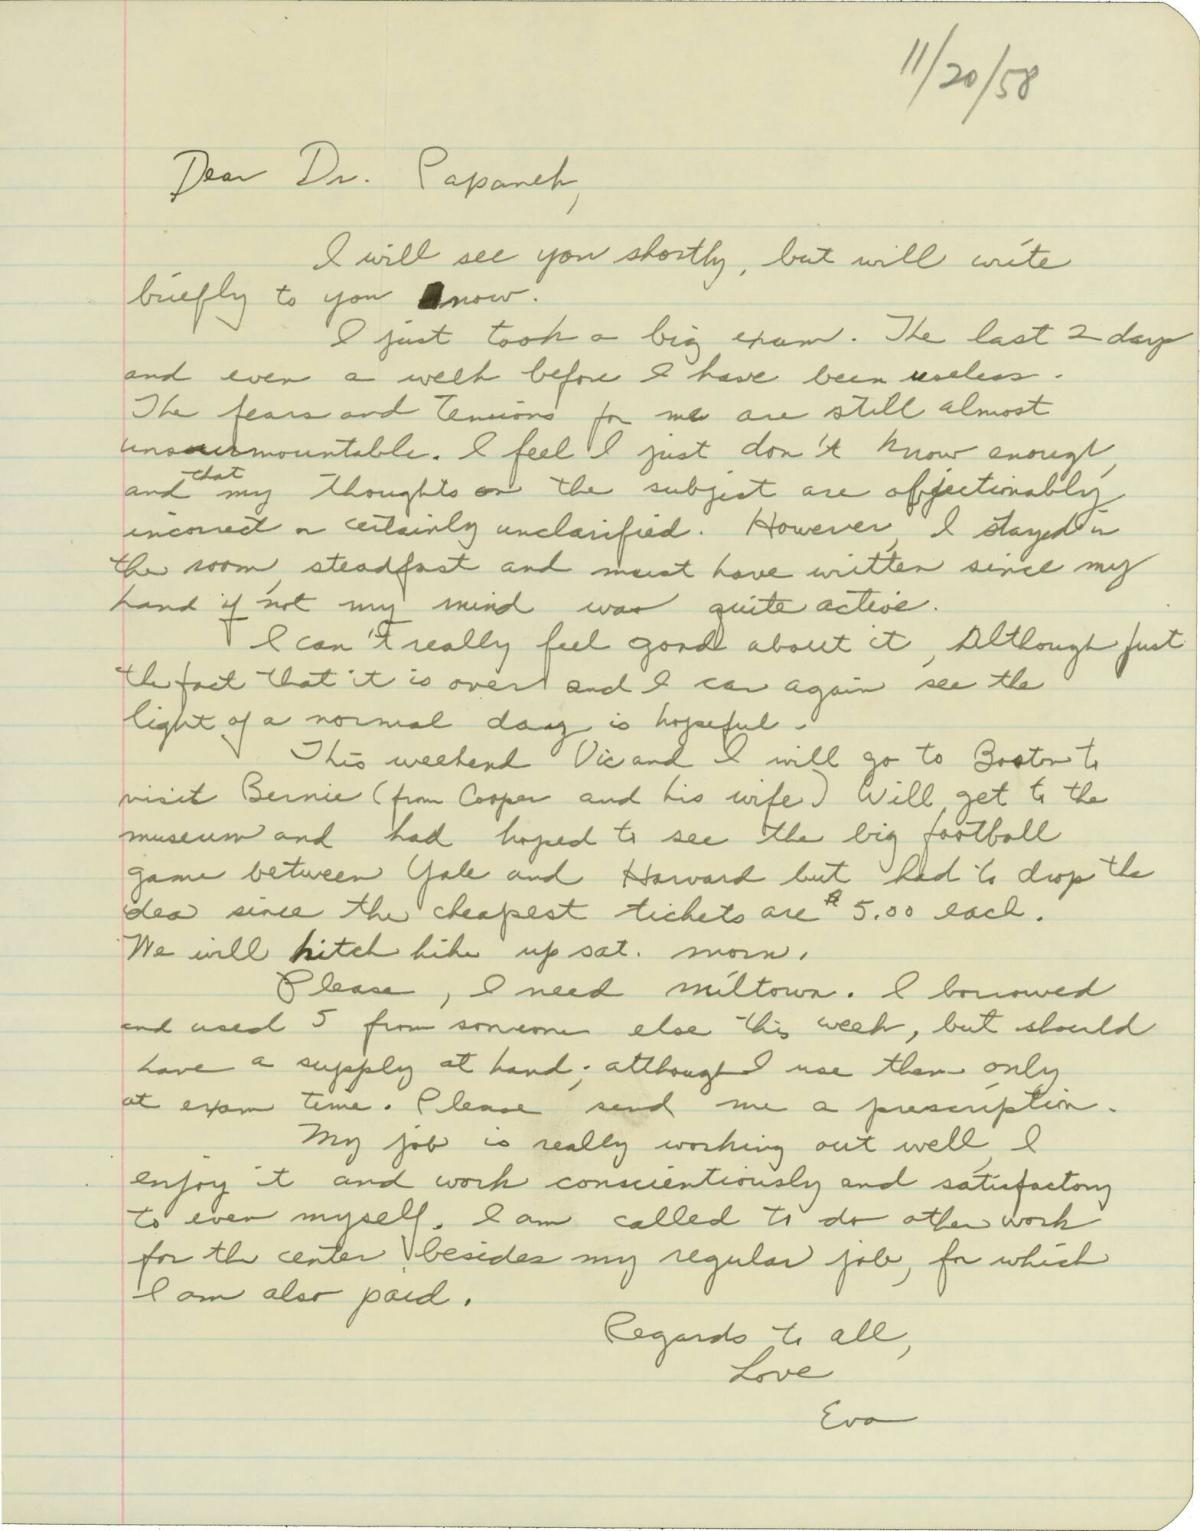 11/20/58
Dear Dr. Papanek,
I will see you shortly, but will write
briefly to you now.
I just took a big exam. The last 2 days
and even a week before I have been useless.
The fears and tensions for me are still almost
unsurmountable. I feel I just don't know enough,
and that my thoughts on the subject are objectionably
incorrect or certainly unclarified. However, I stayed in
the room, steadfast and must have written since my
hand if not my mind was quite active.
I can't really feel good about it, Although just
the fact that it is over and I can again see the
light of a normal day is hopeful.
This weekend Vic and I will go to Boston to
visit Bernie (from Cooper and his wife) Will get to the
museum and had hoped to see the big football
game between Yale and Harvard but had to drop the
idea since the cheapest tickets are $5.00 each.
We will hitch hike up sat. morn.
Please, I need miltown. I borrowed
and used 5 from someone else this week, but should
have a supply at hand; although I use them only
at exam time. Please send me a prescription.
My job is really working out well, I
enjoy it and work conscientiously and satisfactory
to even myself. I am called to do other work
for the center besides my regular job, for which
I am also paid.
Regards to all,
Love
Eva